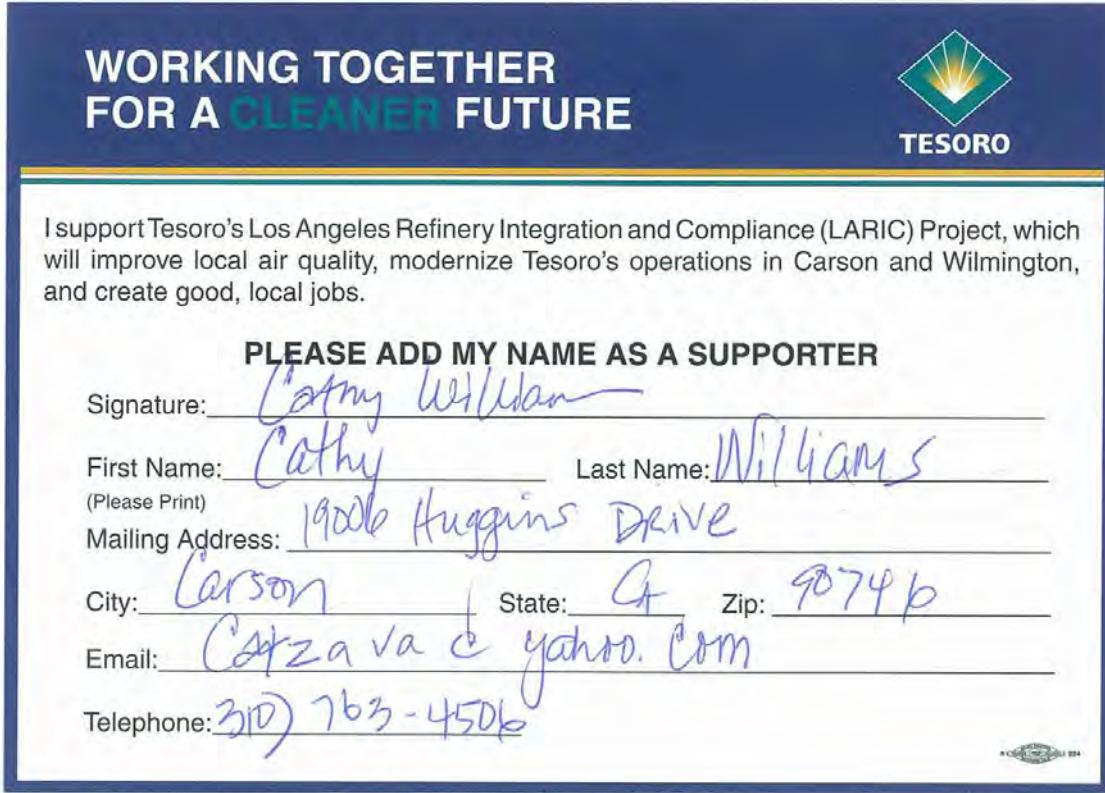 WORKING TOGETHER
FOR A CLEANER FUTURE
TESORO
I support Tesoro's Los Angeles Refinery Integration and Compliance (LARIC) Project, which
will improve local air quality, modernize Tesoro's operations in Carson and Wilmington,
and create good, local jobs.
PLEASE ADD MY NAME AS A SUPPORTER
Signature: Cathy William
First Name: Cathy Last Name: Williams
(Please Print)
Mailing Address: 19006 Huggins Drive
City: Carson State: CA Zip: 90746
Email: Catzava@yahoo.com
Telephone: 310) 763-4506